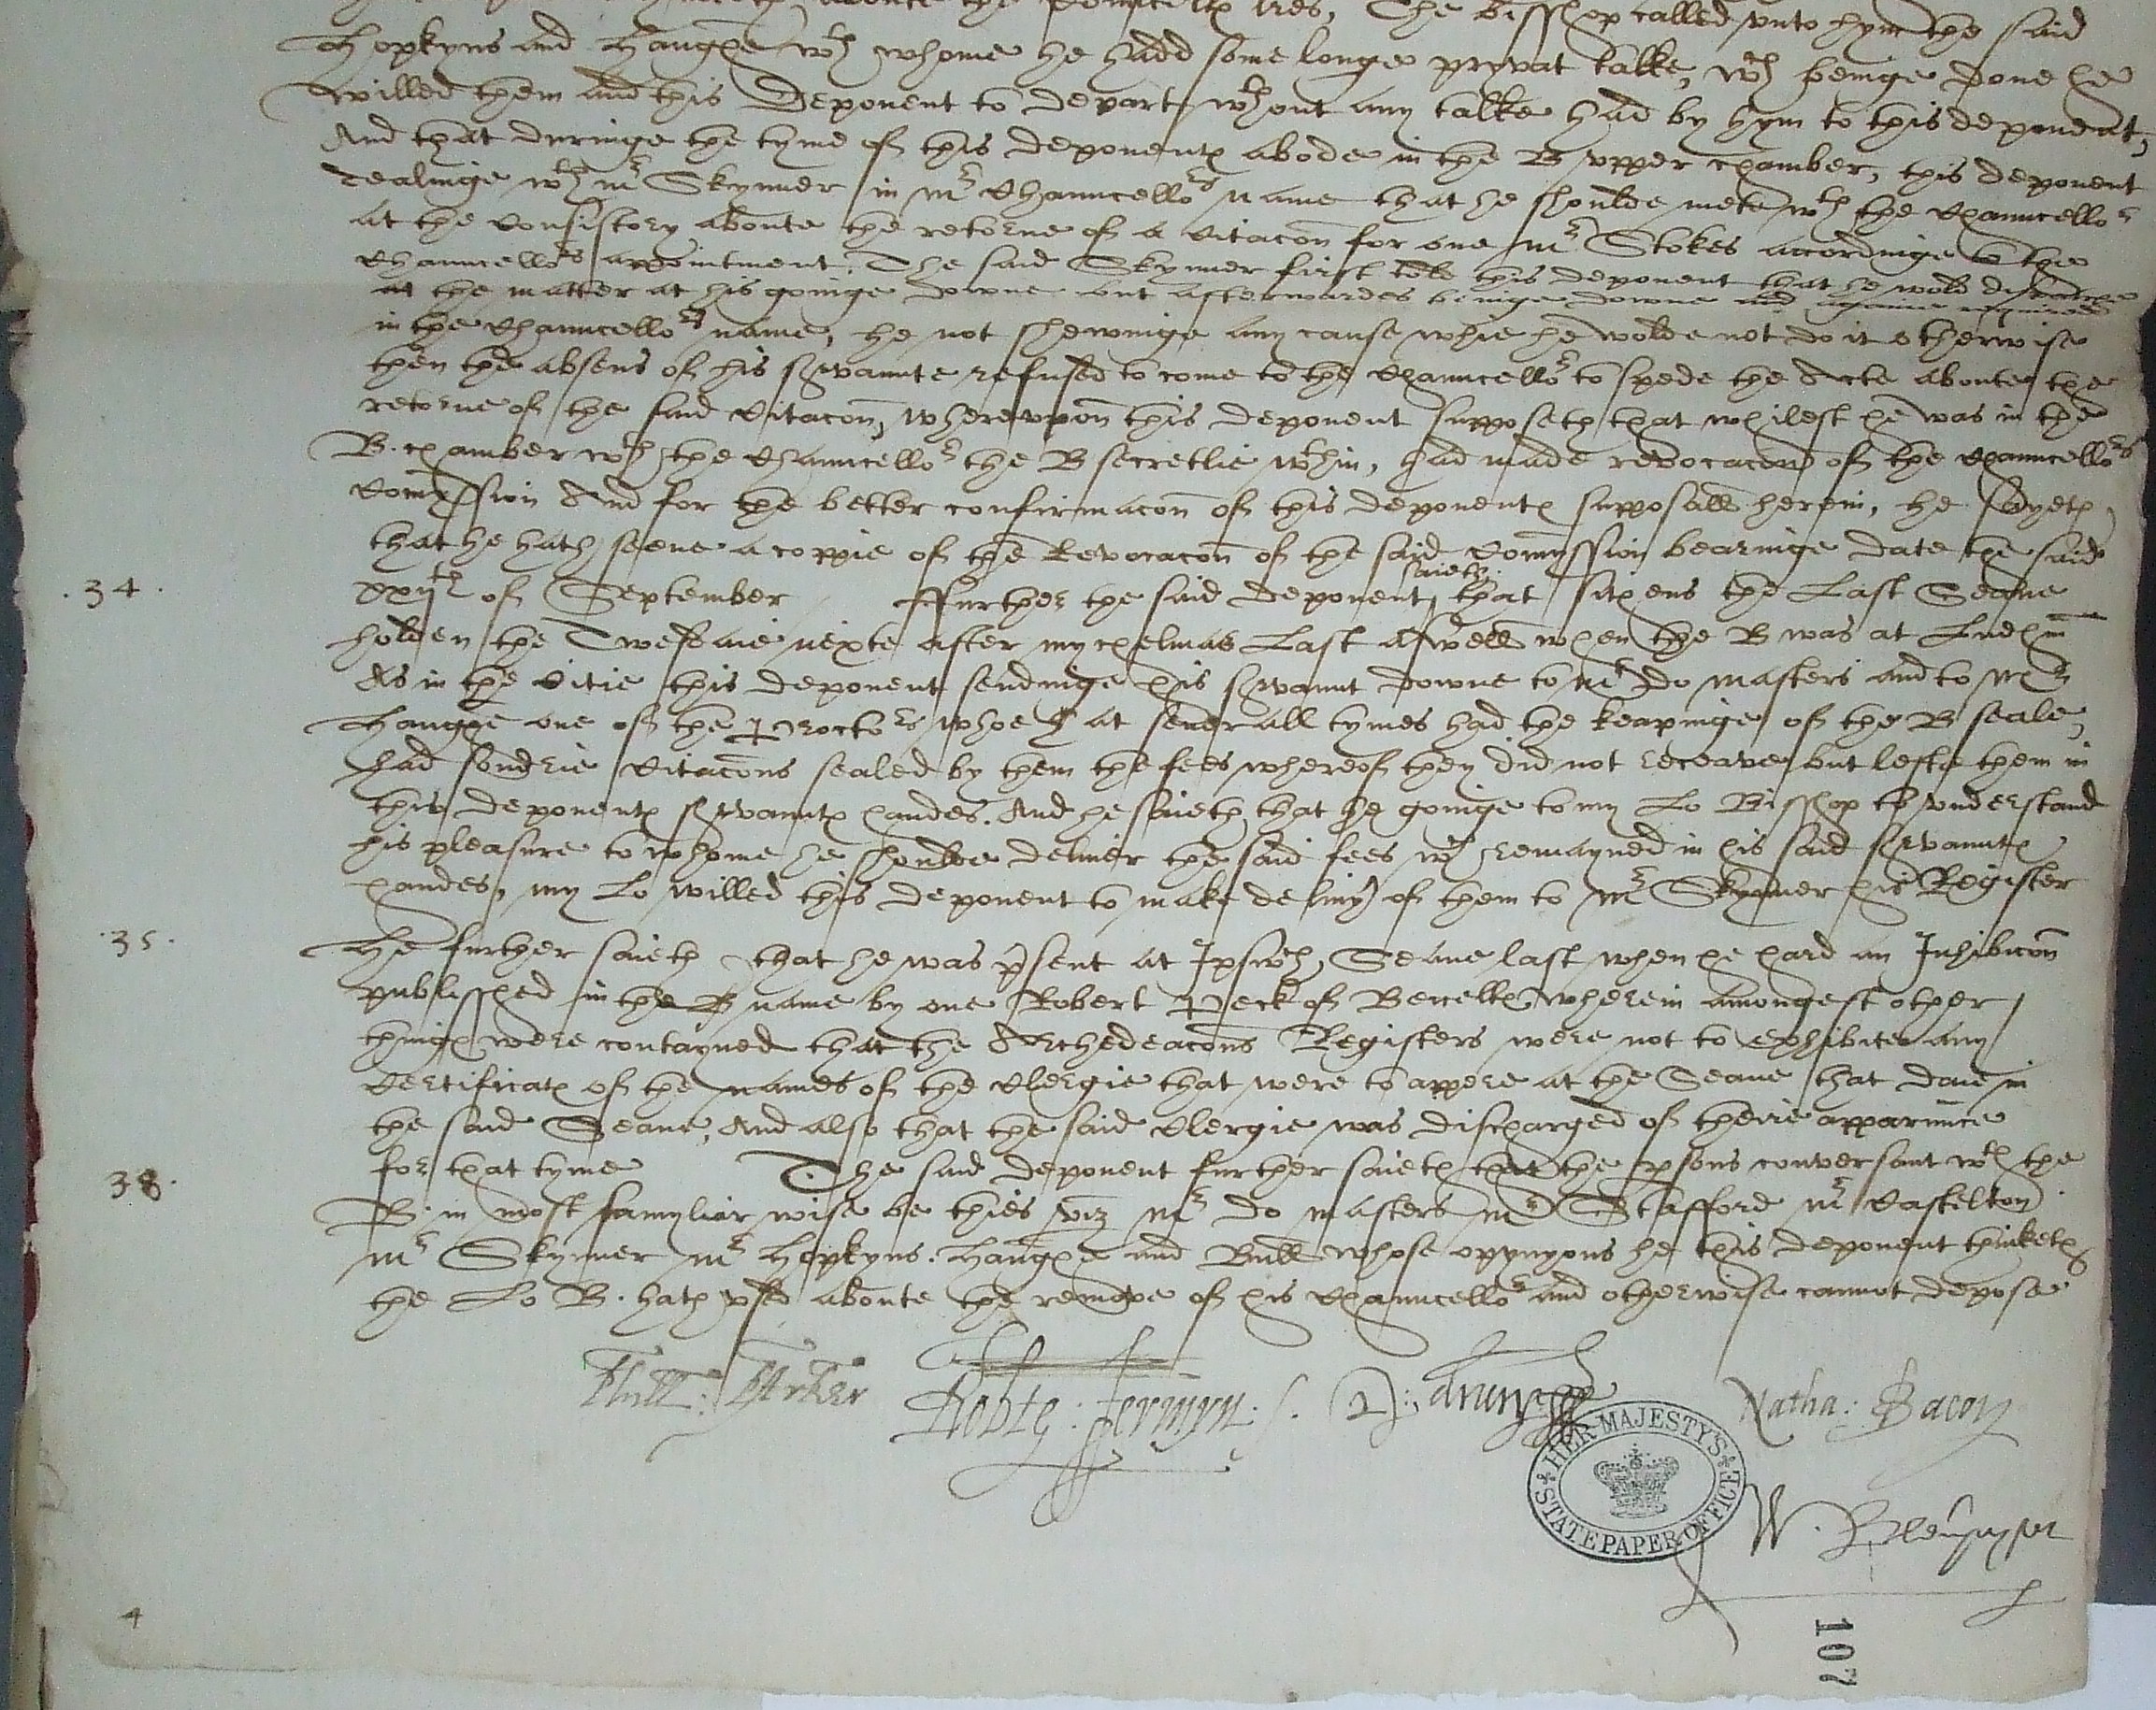 aboute the Councells lres, The bisshop called vnto hym the said
Hopkyns and Haughe wth whome he hadd some longe pryvat talke, wch beinge done he
willed them and this Deponent to depart wthout any talke had by hym to this deponent,
And that duringe the tyme of this deponents abode in the B vpper chamber, this deponent
dealinge wth mr Skynner in mr Chauncellors name that he shoulde mete wth the Chauncellor
at the Consistory aboute the retorne of a Citacon for one mr Stokes accordinge to the
Chauncellors appointment. The said Skynner first tolde this deponent that he wold dispatche
the matter at his goinge downe but afterwardes beinge downe and againe required
in the Chauncellors name, he not shewinge any cause whie he wolde not do it otherwise
then the absens of his servaunte refused to come to the Chauncellor to spede the Acte aboute the
retorne of the said Citacon, wherevpon this deponent supposeth that whilest he was in the
B. chamber wth the Chauncellor the B secretlie wthin, had made revocacon of the Chauncellors
Comyssion And for the better confirmacon of this deponents supposall herein, he sayeth
that he hath seene a coppie of the Revocacon of the said Comyssion bearinge date the said
.34. xxijth of September ffurther the said deponent saieth that sithens the Last Seane
holden the Twesdaie nexte after mychelmas Last aswell when the B was at Ludhm
As in the Citie this deponent sendinge his servaunt downe to mr Do Masters and to mr
Haughe one of the Proctors whoe at severall tymes had the keapinge of the B seale,
had sondrie Citacons sealed by them the fees whereof they did not receave but lefte them in
this deponents servaunts handes. And he saieth that he goinge to my Lo Bisshop to vnderstand
his pleasure to whome he shoulde deliver the said fees wch remayned in his said servaunts
handes, my Lo willed this deponent to make delivy of them to mr Skynner his Register
.35. He further saieth that he was psent at Ipswch Seane last when he hard an Inhibicon
publisshed in the B name by one Robert Peck of Beccells, wherein amongest other
things were contayned that the Archedeacons Registers were not to exhibite any
Certificats of the names of the Clergie that were to appere at the Seane that daie in
the said Seane, And also that the said Clergie was discharged of theire apparunce
38. for that tyme The said deponent further saieth that the psons conversant wth the
B. in most famyliar wise be thies viz mr Do Masters mr Stafford mr Castelton
mr Skynner mr Hopkyns. Haughe and Bull whose opynyons he this deponent thinketh
the Lo B. hath vsed aboute the remove of his Chauncellor and otherwise cannot depose
Robte: Jermyn Natha: Bacon
HER MAJESTY'S STATE PAPER OFFICE
W.
4
107